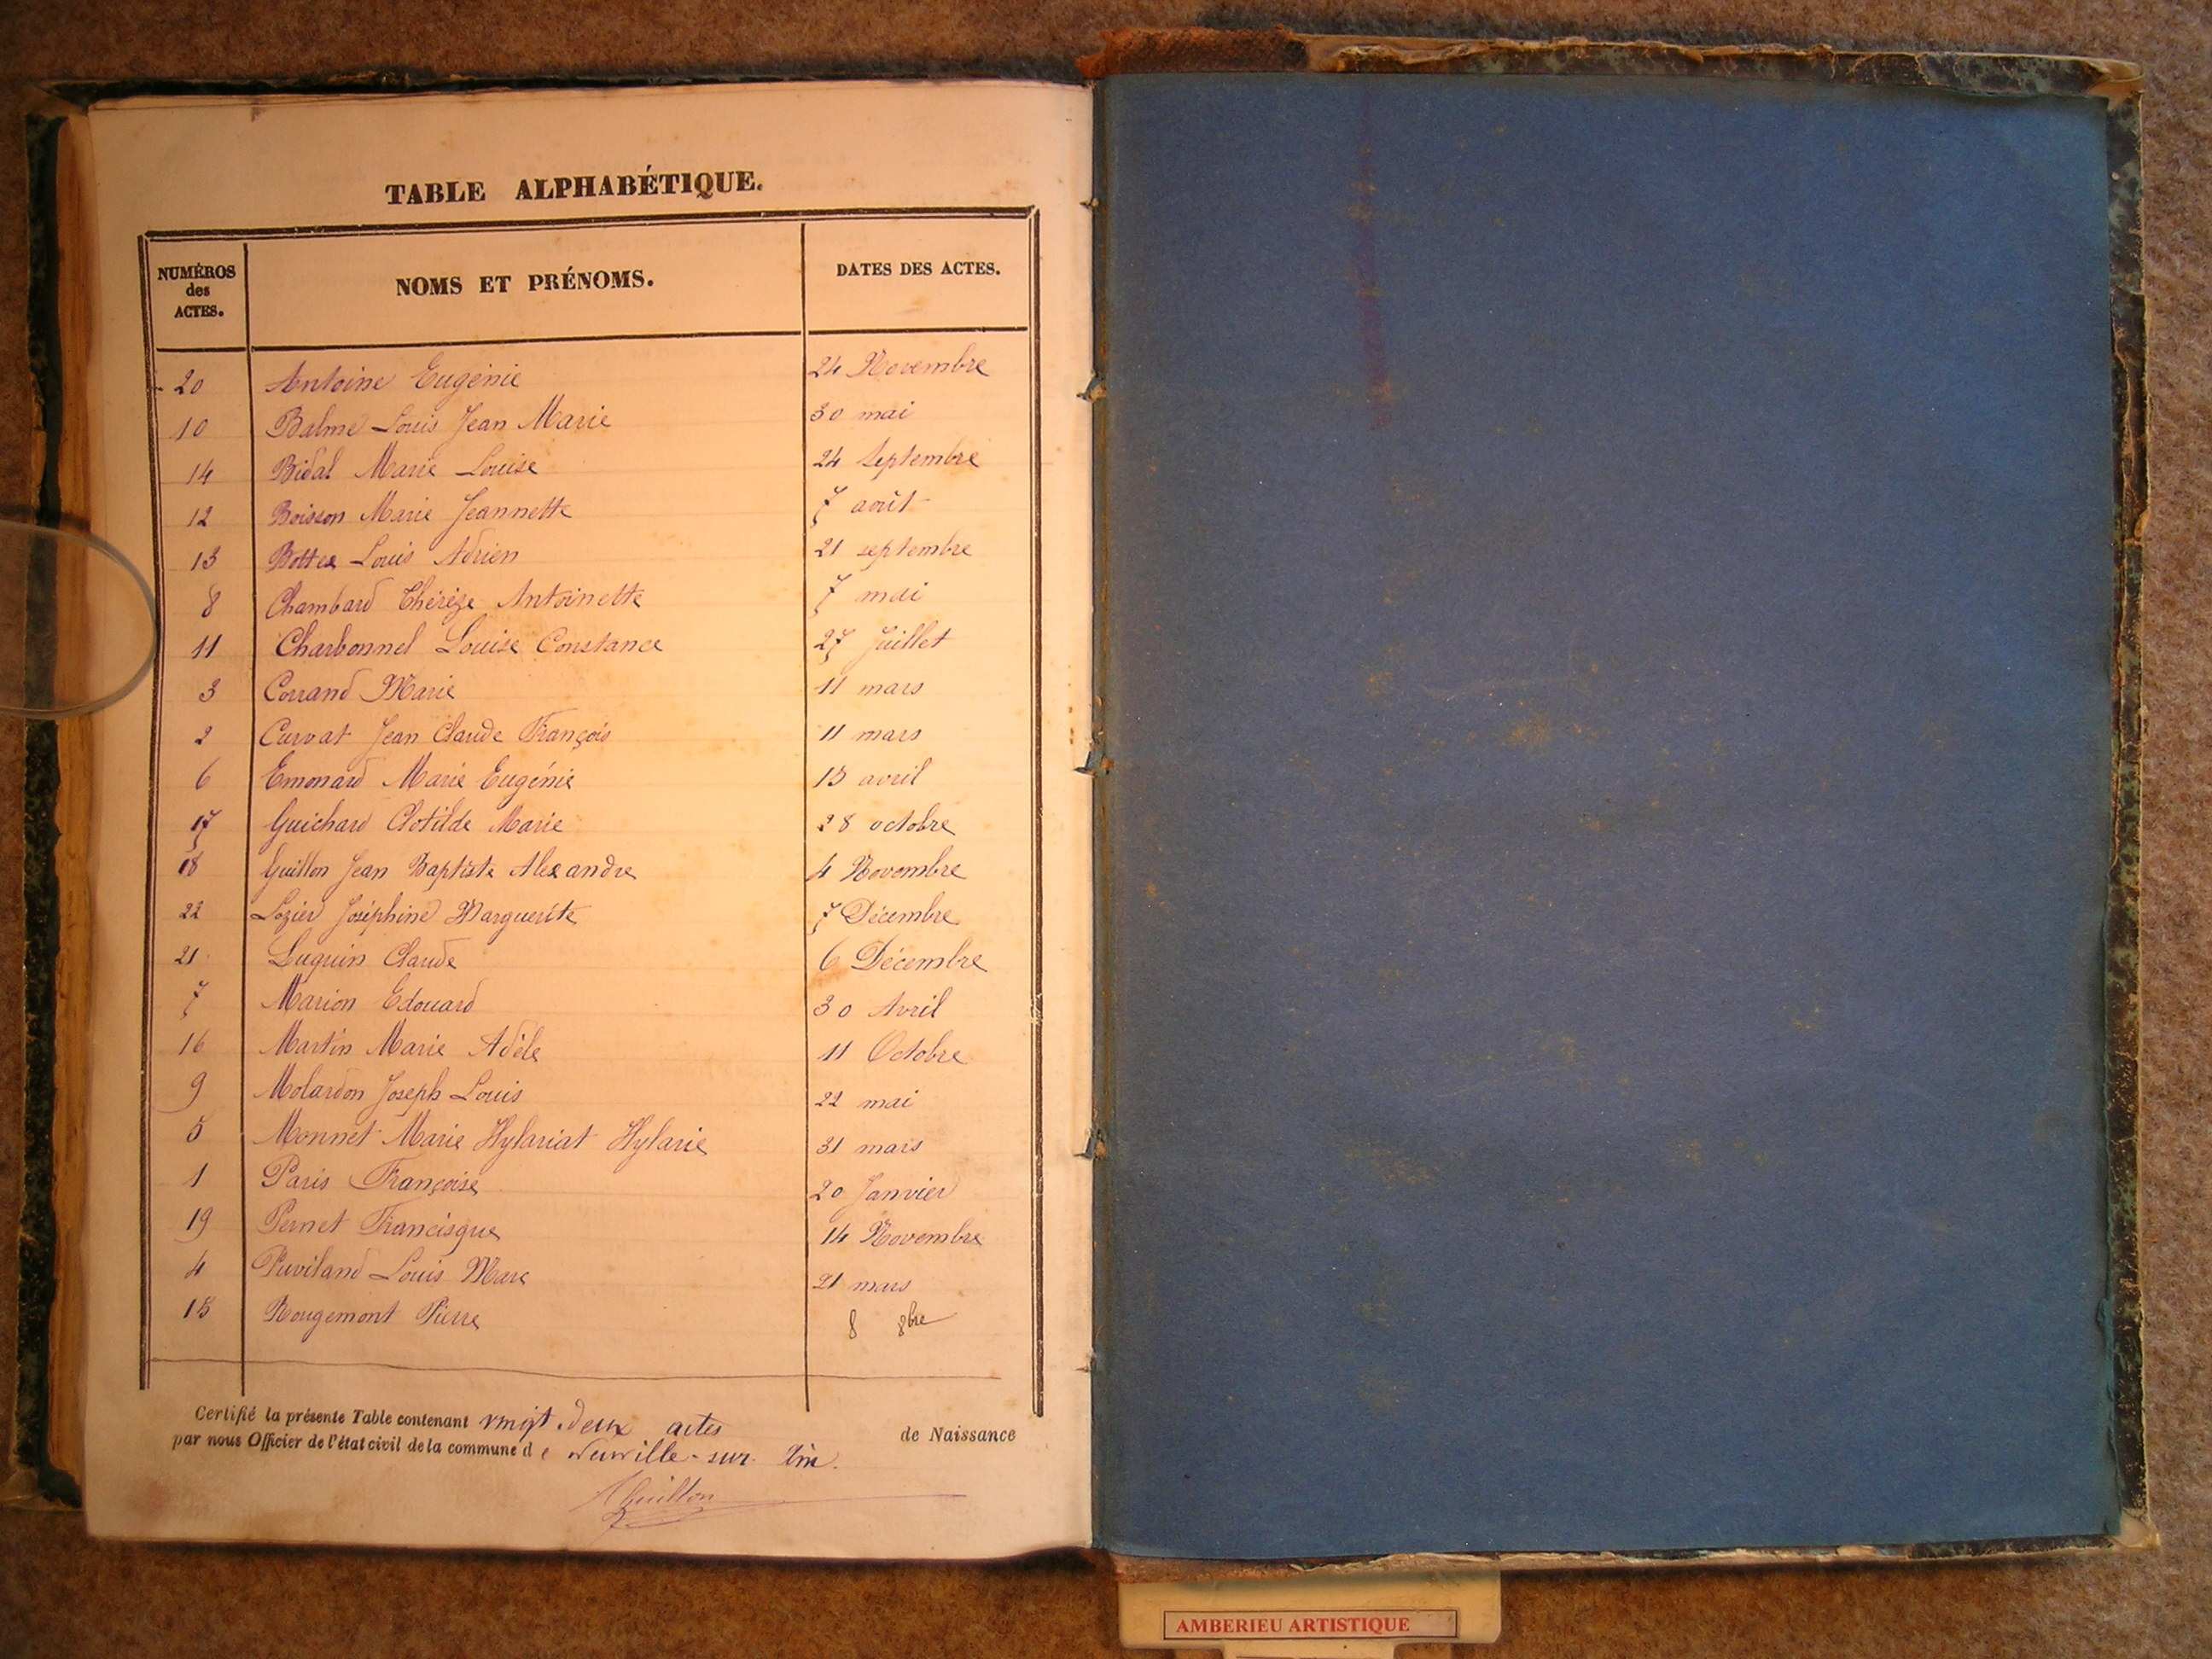 TABLE ALPHABÉTIQUE.
NUMÉROS des ACTES. NOMS ET PRÉNOMS. DATES DES ACTES.
20 Antoine Eugénie 24 Novembre
10 Balme Louis Jean Marie 30 mai
14 Bidal Marie Louise 24 Septembre
12 Boisson Marie Jeannette 7 août
13 Bottex Louis Adrien 21 septembre
8 Chambard Thérèze Antoinette 7 mai
11 Charbonnel Louise Constance 27 Juillet
3 Corrand Marie 11 mars
2 Curvat Jean Claude François 11 mars
6 Emonard Marie Eugénie 15 avril
17 Guichard Clotilde Marie 28 octobre
18 Guillon Jean Baptiste Alexandre 4 Novembre
22 Lozier Joséphine Marguerite 7 Décembre
21 Luquin Claude 6 Décembre
7 Marion Edouard 30 Avril
16 Martin Marie Adèle 11 Octobre
9 Molardon Joseph Louis 22 mai
5 Monnet Marie Hylariat Hylarie 31 mars
1 Paris Françoise 20 Janvier
19 Pernet Francisque 14 Novembre
4 Puviland Louis Marc 21 mars
15 Rougemont Pierre 8 8bre
Certifié la présente Table contenant vingt-deux actes de Naissance
par nous Officier de l'état civil de la commune de Neuville-sur-Ain.
AGuillon
AMBERIEU ARTISTIQUE